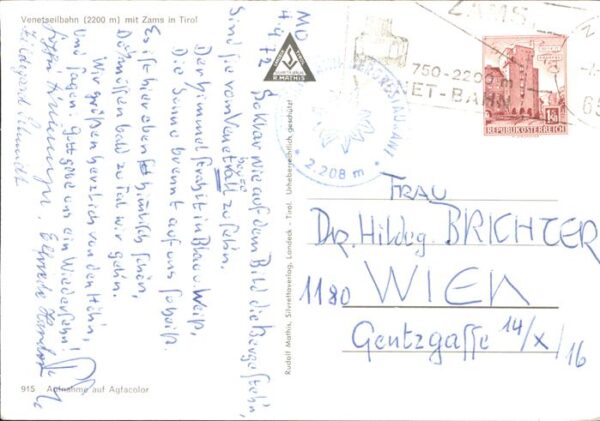 Venetseilbahn (2200 m) mit Zams in Tirol
MO
4.4.72
wie auf dem Bild die Berge stehn,
Sind sie vom Venet herge zu sehn.
Der Himmel strahlt in Blau-Weiß,
Die Sonne brennt auf uns
Es ist hier oben himmlisch schön,
bald zu Tal wir gehn.
Wir grüßen herzlich von den Höhn,
Und sagen: Gott gebe uns ein Wiedersehn!
Hildegard Schmidt
915 Aufnahme auf Agfacolor
R. MATHIS
Rudolf Mathis, Silvrettaverlag, Landeck - Tirol. Urheberrechtlich geschützt
2.208 m
ZAMS,
750-2200 m
VENET-BAHN
1.50
REPUBLIK ÖSTERREICH
FRAU
Dr. Hildeg. BRICHTER
1180 WIEN
Gentzgasse 14/X/16